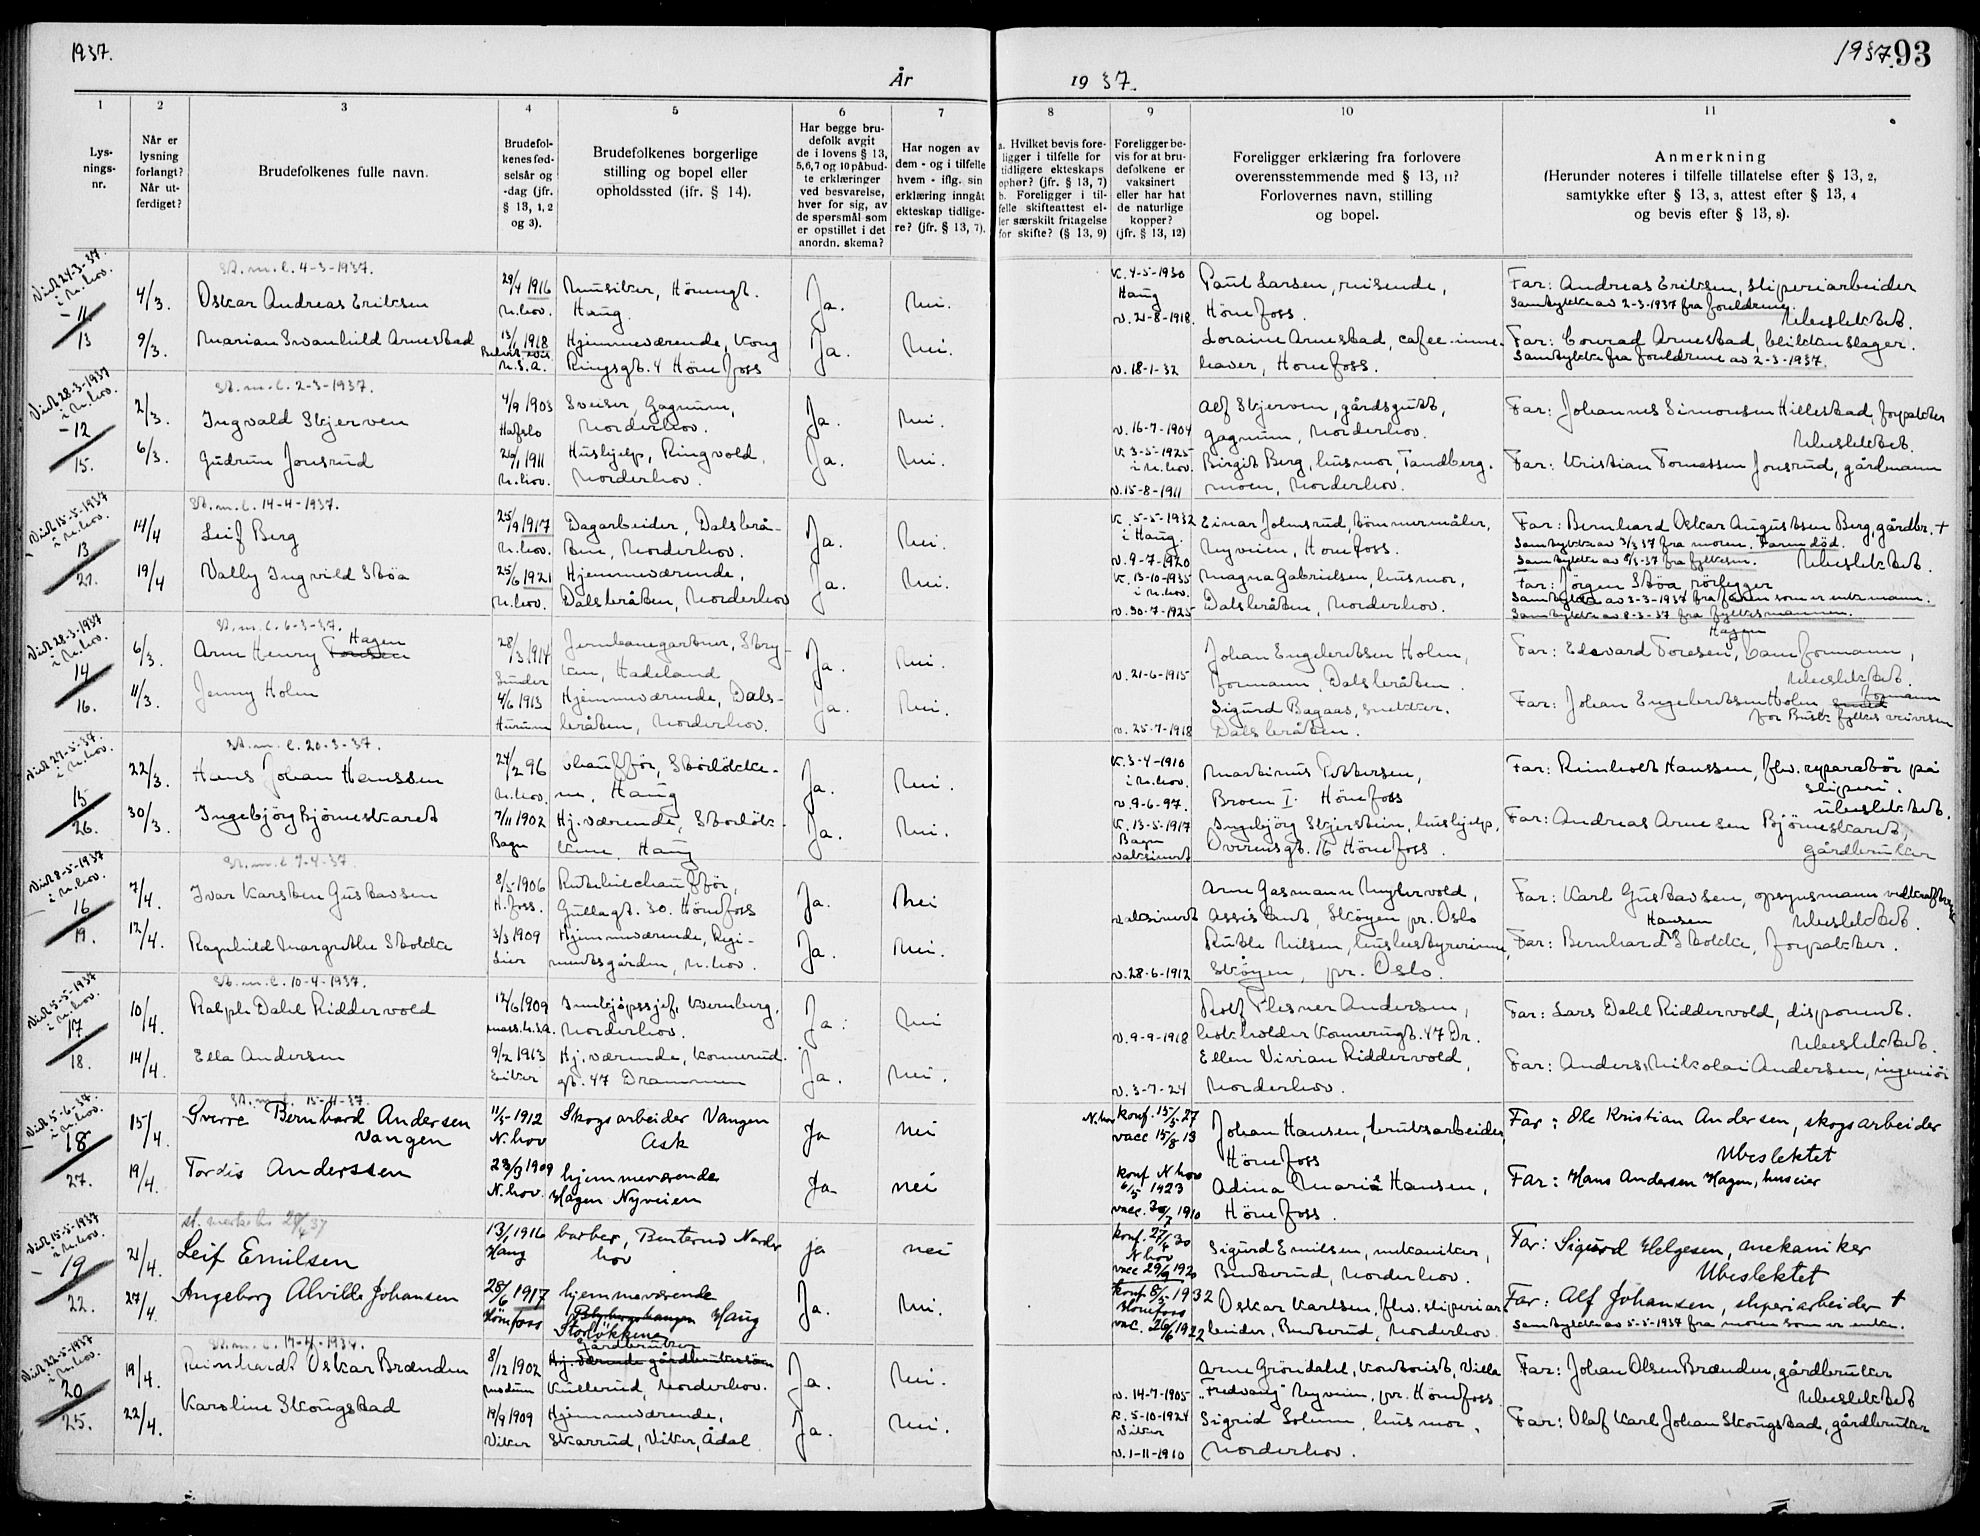 1937.
1937. 93
År
19 37.
1
2
3
4
5
6
7
8
9
10
11
Lys-
nings-
nr.
Når er
lysning
forlangt?
Når ut-
ferdiget?
Brudefolkenes fulle navn.
Brudefol-
kenes fød-
selsår og
-dag (jfr.
§ 13, 1, 2
og 3).
Brudefolkenes borgerlige
stilling og bopel eller
opholdssted (ifr. § 14).
Har begge bru-
defolk avgit
de i lovens § 13,
5,6,7 og 10 påbud-
te erklæringer
ved besvarelse,
hver for sig, av
de spørsmål som
er opstillet i det
anordn. skema?
Har nogen av
dem - og i tilfelle
hvem - iflg. sin
erklæring inngåt
ekteskap tidlige-
re? (jfr. § 13, 7).
a. Hvilket bevis fore-
ligger i tilfelle for
tidligere ekteskaps
ophør? (jfr. § 13, 7)
b. Foreligger i til-
felle skifteattest el-
ler særskilt fritagelse
for skifte? (§ 13, 9)
Foreligger be-
vis for at bru-
defolkene er
vaksinert
eller har hat
de naturlige
kopper?
(jfr. § 13, 12)
Foreligger erklæring fra forlovere
overensstemmende med § 13, 11?
Forlovernes navn, stilling
og bopel.
Anmerkning
(Herunder noteres i tilfelle tillatelse efter § 13, 2,
samtykke efter § 13, 3, attest efter § 13, 4
og bevis efter § 13, 8).
Viet 24-3-37.
i N.hov.
11
13
St. m. l. 4-3-1937.
4/3. Oskar Andreas Eriksen 29/4 1916 Musiker, Hönengt. Ja. Nei. K. 4-5-1930 Paul Larsen, reisende, Far: Andreas Eriksen, sliperiarbeider
N.hov. Haug. Haug v. 21-8-1918. Hönefoss. Samtykke av 2-3-1937 fra foreldrene. Ubeslektet.
9/3. Marian Svanhild Arnestad 13/1 1918 Hjemmeværende, Kong Ja. Nei. Loraine Arnestad, cafee-inne- Far: Conrad Arnestad, blikkenslager.
U.S.A. Ringsgt. 4 Hönefoss v. 18-1-32 haver, Hönefoss. Samtykke fra foreldrene av 2-3-1937.
Viet 28-3-1937
i N.hov.
12
15.
St. m. l. 2-3-1937.
2/3. Ingvald Skjerven 4/9 1903 Sveiser, Gagnum, Ja. Nei. Alf Skjerven, gårdsgutt, Far: Johannes Simonsen Hillestad, forpakter
Hafslo Norderhov. v. 16-7-1904 Gagnum, Norderhov. Ubeslektet.
6/3. Gudrun Jonsrud 26/1 1911 Hushjelp, Ringvold, Ja. Nei. K. 3-5-1925 i N.hov. Birgit Berg, husmor, Tandberg- Far: Kristian Tomassen Jonsrud, gårdmann
N.hov. Norderhov. v. 15-8-1911 moen, Norderhov.
Viet 15-5-1937
i N.hov.
13
21.
St. m. l. 14-4-1937.
14/4 Leif Berg 25/9 1917 Dagarbeider, Dalsbrå- Ja. Nei. K. 5-5-1932 Einar Johnsrud, tömmermåler, Far: Bernhard Oskar Augustsen Berg, gårdbr. +
N.hov. ten, Norderhov. i Haug. v. 9-7-1920 Nyveien, Hönefoss. Samtykke av 3/3 37 fra moren. Faren död.
Samtykke av 8/3-37 fra fylkesm. Ubeslektet.
19/4 Vally Ingvild Stöa 25/6 1921 Hjemmeværende, Ja. Nei. K. 13-10-1935 i N.hov. Magna Gabrielsen, husmor, Far: Jörgen Stöa, rörlegger
N.hov. Dalsbråten, Norderhov v. 30-7-1925 Dalsbråten, Norderhov. Samtykke av 3-3-1937 fra faren som er enkemann.
Samtykke av 8-3-37 fra fylkesmannen.
Viet 28-3-1937
i N.hov.
14
16.
St. m. l. 6-3-37.
Hagen
6/3. Arne Henry Toresen 28/3 1914 Jernbanegartner, Stry- Ja. Nei. Johan Engebretsen Holm, Far: Edvard Toresen Hagen, baneformann,
ken, Hadeland v. 21-6-1915 formann, Dalsbråten. Ubeslektet.
11/3. Jenny Holm 4/6 1913 Hjemmeværende, Dals- Ja. Nei. Sigurd Bagaas, snekker, Far: Johan Engebretsen Holm, smed formann
Hurum bråten, Norderhov. v. 25-7-1918 Dalsbråten. for Busk. fylkes veivesen
Viet 27-5-37.
i N.hov.
15
26.
St. m. l. 20-3-37.
22/3. Hans Johan Hanssen 24/2 96 Chaufför, Storlökke- Ja. Nei. K. 3-4-1910 i N.hov. Martinus Pettersen, Far: Reinholt Hanssen, fhv. reparatör på
N.hov. ne, Haug v. 9-6-97. Broen I. Hönefoss sliperi. Ubeslektet.
30/3. Ingebjörg Björneskaret 7/11 1902 Hj. værende, Storlök- Ja. Nei. K. 13-5-1917 Ingebjörg Skjerstein, hushjelp, Far: Andreas Arnesen Björneskaret,
Bagn kene, Haug Bagn vaksinert Overensgt. 16 Hönefoss. gårdbruker
Viet 8-5-1937
i N.hov.
16
19.
St. m. l. 7-4-37.
7/4. Ivar Karsten Gustavsen 8/5-1906 Rutebilchauffför, Ja. Nei Arne Gasmann Myhrvold, Far: Karl Gustavsen, opsynsmann ved
H.foss. Gullagt. 30. Hönefoss vaksinert assistent, Sköyen pr. Oslo Ubeslektet.
12/4. Ragnhild Margrethe Stokke 3/3 1909 Hjemmeværende, Regi- Ja. Nei. Ruthe Nilsen, husbestyrerinne, Far: Bernhard Hansen Stokke, forpakter.
Lier mentsgården, N.hov. v. 28-6-1912 Sköyen, pr. Oslo.
Viet 15-5-1937
i N.hov.
17
18.
St. m. l. 10-4-1937.
10/4. Ralph Dahl Riddervold 12/6 1909 Innkjöpssjef, Kvernberg, Ja. Nei Rolf Plesner Andersen, Far: Lars Dahl Riddervold, disponent.
Mass. U.S.A. Norderhov. v. 9-9-1918 bokholder Konnerugt. 47 Dr. Ubeslektet.
14/4. Ella Andersen 9/2 1913 Hj. værende, Konnerud- Ja. Nei. Ellen Vivian Riddervold, Far: Anders Nikolai Andersen, ingeniör
Eiker gt. 47 Drammen v. 3-7-24 Norderhov.
Viet 5-6-37.
i N.hov.
18
27.
St. m. l. 15-4-37.
15/4. Sverre Bernhard Andersen 11/5-1912 Skogsarbeider Vangen Ja nei N.hov konf. 15/5-27 Johan Hansen, bruksarbeider, Far: Ole Kristian Andersen, skogsarbeider
Vangen N.hov Ask vacc 15/8 13 Hönefoss Ubeslektet
19/4. Tordis Anderssen 23/9 1909 hjemmeværende Ja nei konf N hov 6/5 1923 Adina Marie Hansen, Far: Hans Andersen Hagen, huseier
N.hov. Hagen Nyveien vacc. 30/7 1910 Hönefoss.
Viet 15-5-1937
i N.hov.
19
22.
21/4. Leif Emilsen 13/1 1916 barber, Benterud Norder ja nei konf. 27/4 30 Sigurd Emilsen, mekaniker, Far: Sigurd Helgesen, mekaniker
Haug hov N hov vacc 29/9 1920 Benterud, Norderhov. Ubeslektet
27/4. Ingeborg Alvilde Johansen 28/6 1917 hjemmeværende Ja. Nei. konf 8/5 1932 Oskar Karlsen, fhv. sliperiar- Far: Alf Johansen, sliperiarbeider +
Hönefoss Haug Storlökkene Hönefoss vac. 26/6 1922 beider, Benterud, Norderhov. Samtykke av 5-5-1937 fra moren som er enke.
Viet 22-5-1937
i N.hov.
20
25.
St. m. l. 19-4-1937.
gårdbruker
19/4. Reinhardt Oskar Brænden 8/12 1902 Hj. værende gårdbrukersön Ja. Nei. Arne Gröndahl, kontorist, Villa Far: Johan Olsen Brænden, gårdbruker
Modum Kullerud, Norderhov. v. 14-7-1905 "Fredvang" Nyveien, pr. Hönefoss Ubeslektet
22/4. Karoline Skougstad 19/9 1909 Hjemmeværende, Ja. Nei. K. 5-10-1924 Viker Sigrid Solum, husmor, Far: Olaf Karl Johan Skougstad, gårdbruker
Viker Skarrud, Viker, Ådal v. 1-11-1910 Norderhov.